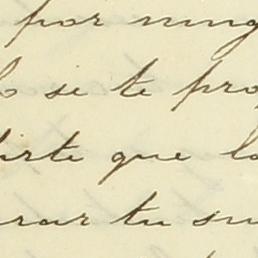 por ning
lo se te pro
irte que lo
rar tu su